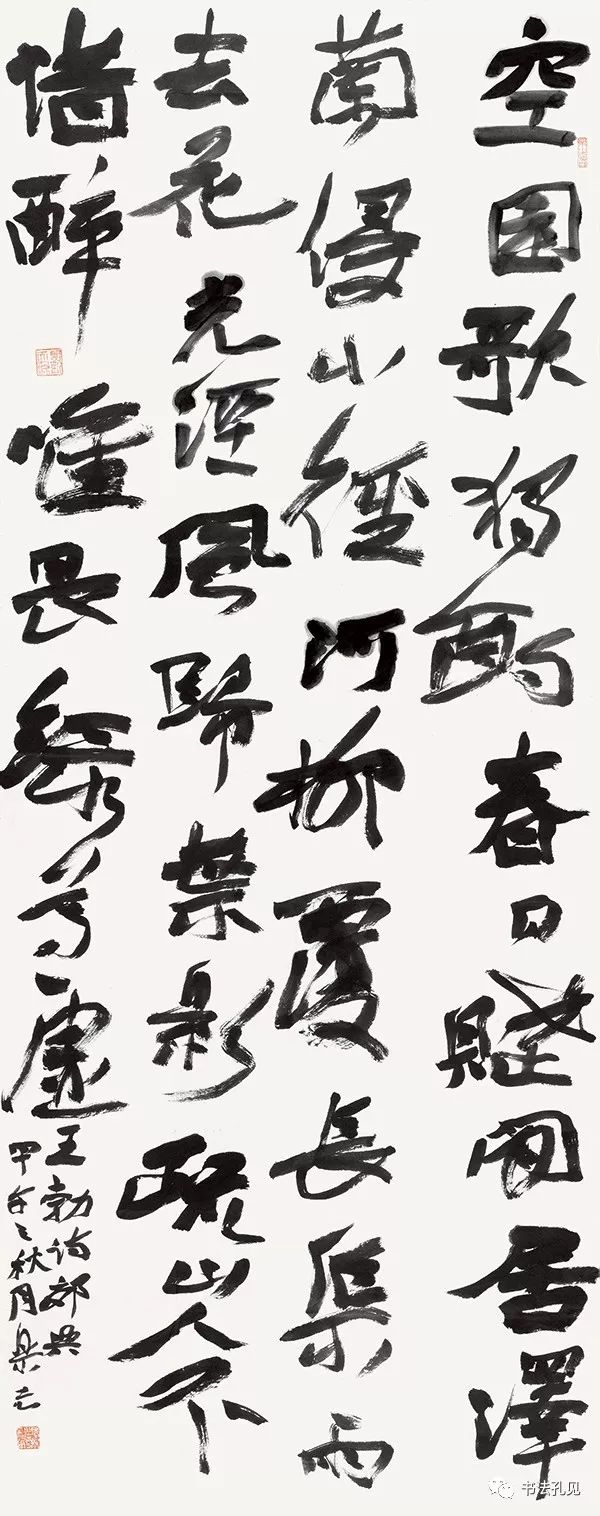 空園歌獨酌春日賦閒居澤
蘭侵小徑河柳覆長渠雨
去花光溼風歸葉影疏山人不
惜醉唯畏綠尊虛
王勃詩郊興
甲午之秋月
书法孔见